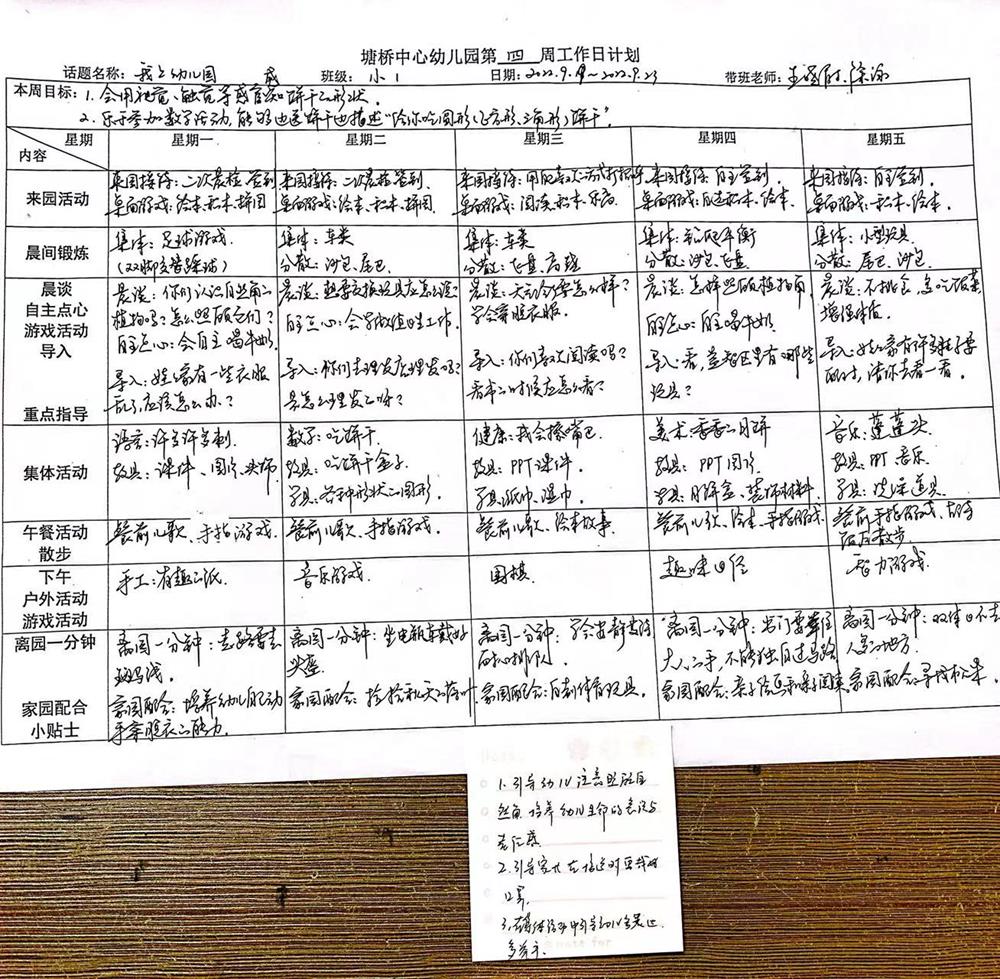 塘桥中心幼儿园第 四 周工作日计划
话题名称：我上幼儿园 班级：小1 日期：2022.9. ~2022.9.23 带班老师：
本周目标：1.会用视觉、触觉等感官感知饼干的形状。
2.乐于参加数学活动，能够边送饼干边描述“给你吃圆形（正方形、三角形）饼干”。
星期 内容 星期一 星期二 星期三 星期四 星期五
来园活动
来园接待：二次晨检、签到
桌面游戏：绘本、积木、拼图
来园接待：二次晨检、签到.
桌面游戏：绘本、积木、拼图
来园接待：用自己喜欢的方式打招呼
桌面游戏：阅读、积木、
来园接待：自主签到.
桌面游戏：积木、绘本.
来园接待：自主签到.
桌面游戏：积木、绘本.
晨间锻炼
集体：足球游戏.
（双脚交替踩球）
集体：车类
分散：沙包、尾巴.
集体：车类
分散：飞盘、高跷
集体：平衡
分散：沙包、飞盘
集体：小型玩具
分散：尾巴、沙包.
晨谈
自主点心
游戏活动
导入
重点指导
晨谈：你们认识自然角的
植物吗？怎么照顾它们？
自主点心：会自主喝牛奶.
导入：娃娃家有一些衣服
乱了，应该怎么办？
晨谈：想要交换玩具应怎么说？
自主点心：会 值日生工作.
导入：你们去理发店理发吗？
是怎么理发的呀？
晨谈：天气冷像怎么样？
学会穿脱衣服.
导入：你们喜欢阅读吗？
看书的时候应怎么看？
晨谈：怎样照顾植物角
自主点心：自主喝牛奶
导入：看，益智区里有哪些
玩具？
晨谈：不挑食，多吃蔬菜
增强体质.
导入：娃娃家有许多鞋子要
配对，请你去看一看.
集体活动
语言：许多许多
教具：课件、图片、头饰
数学：吃饼干
教具：吃饼干盒子
学具：各种形状的图形.
健康：我会擦嘴巴
教具：PPT课件.
学具：纸巾、湿巾.
美术：香香的月饼
教具：PPT 图片
学具：月饼盒、装饰材料.
音乐：蓬蓬头
教具：PPT 音乐
学具：洗澡道具
午餐活动
散步
餐前儿歌、手指游戏.
餐前儿歌、手指游戏.
餐前儿歌、绘本故事
餐前儿歌、绘本、手指游戏.
餐前手指游戏、故事
饭后散步.
下午
户外活动
游戏活动
手工：有趣的纸.
音乐游戏.
围棋.
趣味田径
智力游戏.
离园一分钟
离园一分钟：走路要走
斑马线.
离园一分钟：坐电瓶车戴好
头盔
离园一分钟：学会安静等待
耐心排队.
离园一分钟：出门要牵住
大人的手，不能独自过马路
离园一分钟：双休日不去
人多的地方.
家园配合
小贴士
家园配合：培养幼儿自己动
手穿脱衣的能力.
家园配合：捡捡秋天的落叶
家园配合：自制体育玩具.
家园配合：亲子绘画和亲子阅读
家园配合：寻找水果.
1.引导幼儿注意照顾自
然角，培养幼儿生命的意识与
责任感
2.引导家长在接送时要戴好
口罩.